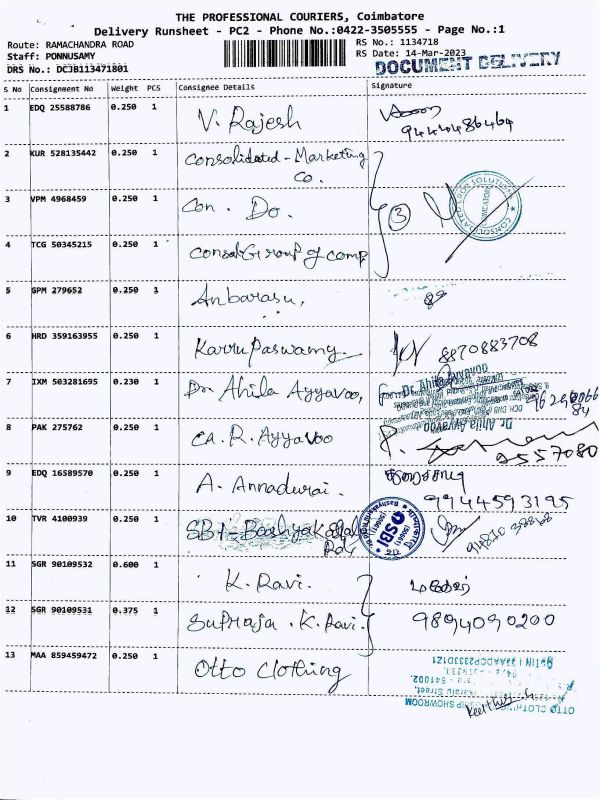 THE PROFESSIONAL COURIERS, Coimbatore
Delivery Runsheet - PC2 - Phone No.:0422-3505555 - Page No.:1
Route: RAMACHANDRA ROAD RS No.: 1134718
Staff: PONNUSAMY RS Date: 14-Mar-2023
DRS No.: DCJB113471801 DOCUMENT DELIVERY
S No Consignment No Weight PCS Consignee Details Signature
1 EDQ 25588786 0.250 1 V. Rajesh
9444486464
2 KUR 528135442 0.250 1 Consolidated - Marketing
Co.
3 VPM 4968459 0.250 1 Con. Do. 3
4 TCG 50345215 0.250 1 Consol Group of comp
5 GPM 279652 0.250 1 Anbarasu,
6 HRD 359163955 0.250 1 Karrupaswamy 8870883708
7 IXM 503281695 0.230 1 Dr. Ahila Ayyavoo, Dr. Ahila Ayyavoo
8 PAK 275762 0.250 1 ca. R. Ayyavoo
9557080
9 EDQ 16589570 0.250 1 A. Annadurai.
9944593195
10 TVR 4100939 0.250 1 SBI - SBI
11 SGR 90109532 0.600 1 K. Ravi.
12 SGR 90109531 0.375 1 Supraja . K. Ravi. 9894090200
13 MAA 859459472 0.250 1 Otto Clothing
641002.
OTTO CLOTHING